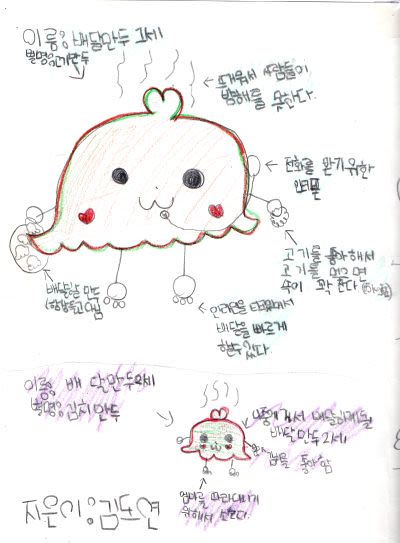 이름: 배달만두 1세
별명: 고기만두
뜨거워서 사람들이
방해를 못한다.
전화를 받기위한
인터폰
고기를 좋아해서
고기를 먹으면
속이 꽉 찬다
배달할 만두
인라인을 타고있어서
배달을 빠르게
할수 있다.
이름: 배달만두2세
별명: 김치만두
나중에 커서 배달하게될
배달만두 2세.
김치를 좋아함
엄마를 따라다니기
위해서 신는다.
지은이: 김도연